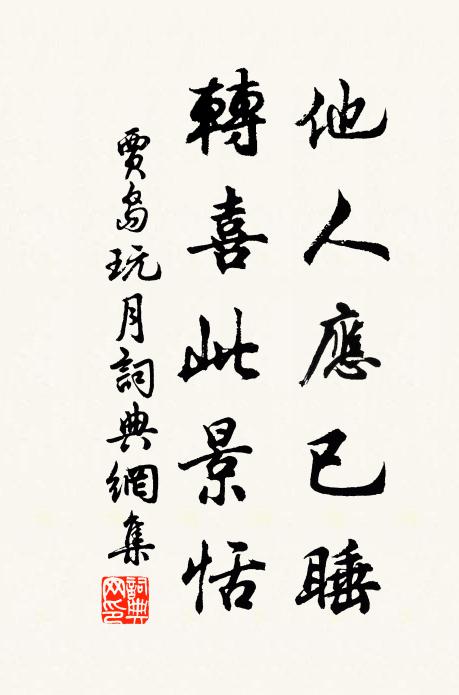 他人應已睡
轉喜此景恬
賈島玩月詞典網集
詞典網印